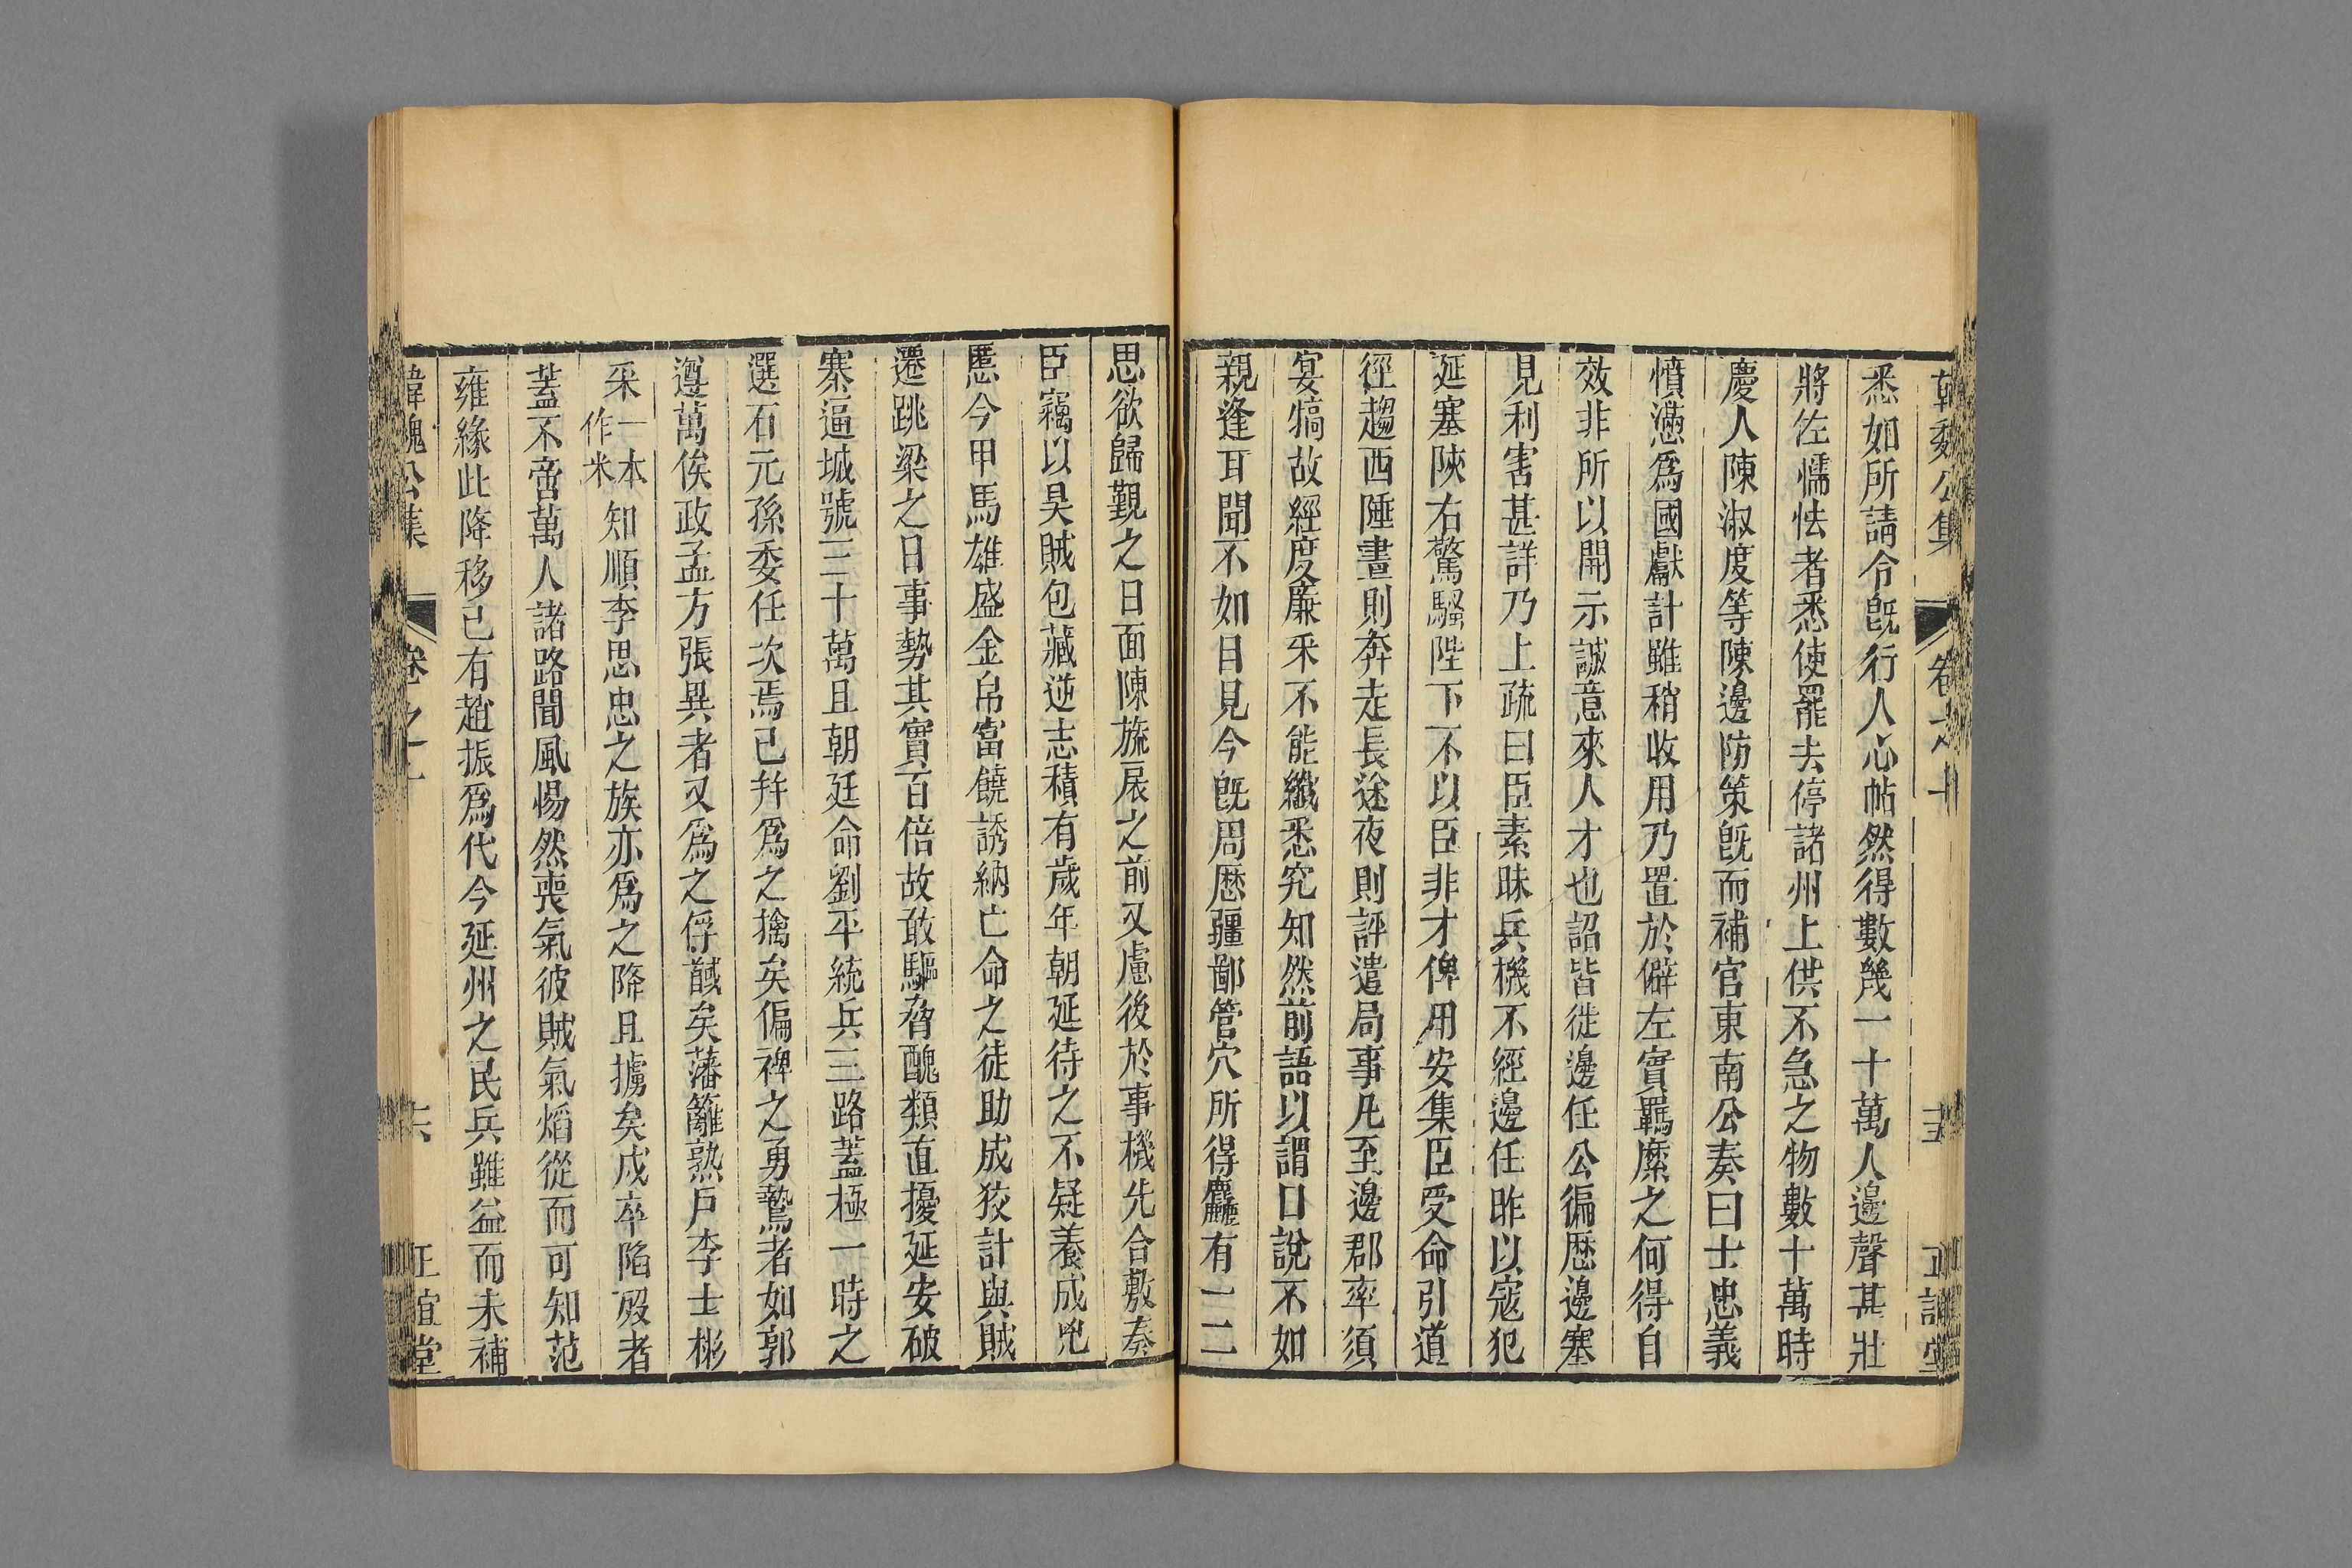 韓魏公集 卷之十 五 正誼堂
悉如所請令旣行人心帖然得數幾一十萬人邊聲甚壯
將佐懦怯者悉使罷去停諸州上供不急之物數十萬時
慶人陳淑度等陳邊防策旣而補官東南公奏曰士忠義
憤懣爲國獻計雖稍收用乃置於僻左實羈縻之何得自
效非所以開示誠意來人才也詔皆徙邊任公徧歷邊塞
見利害甚詳乃上疏曰臣素昧兵機不經邊任昨以寇犯
延塞陝右驚騷陛下不以臣非才俾用安集臣受命引道
徑趨西陲晝則奔走長途夜則評遣局事凡至邊郡率須
宴犒故經度廉采不能纖悉究知然前語以謂口說不如
親逢耳聞不如目見今旣周歷疆鄙管穴所得麤有一二
思欲歸覲之日面陳旒扆之前又慮後於事機先合敷奏
臣竊以昊賊包藏逆志積有歲年朝延待之不疑養成兇
慝今甲馬雄盛金帛富饒誘納亡命之徒助成狡計與賊
遷跳梁之日事勢其實百倍故敢驅脅醜類直擾延安破
寨逼城號三十萬且朝廷命劉平統兵三路蓋極一時之
選石元孫委任次焉已幷爲之擒矣偏裨之勇鷙者如郭
遵萬俟政孟方張異者又爲之俘馘矣藩籬熟戶李士彬
采一本作米知順李思忠之族亦爲之降且擄矣戍卒陷歿者
蓋不啻萬人諸路聞風惕然喪氣彼賊氣焰從而可知范
雍緣此降移已有趙振爲代今延州之民兵雖益而未補
韓魏公集 卷之十 六 正誼堂